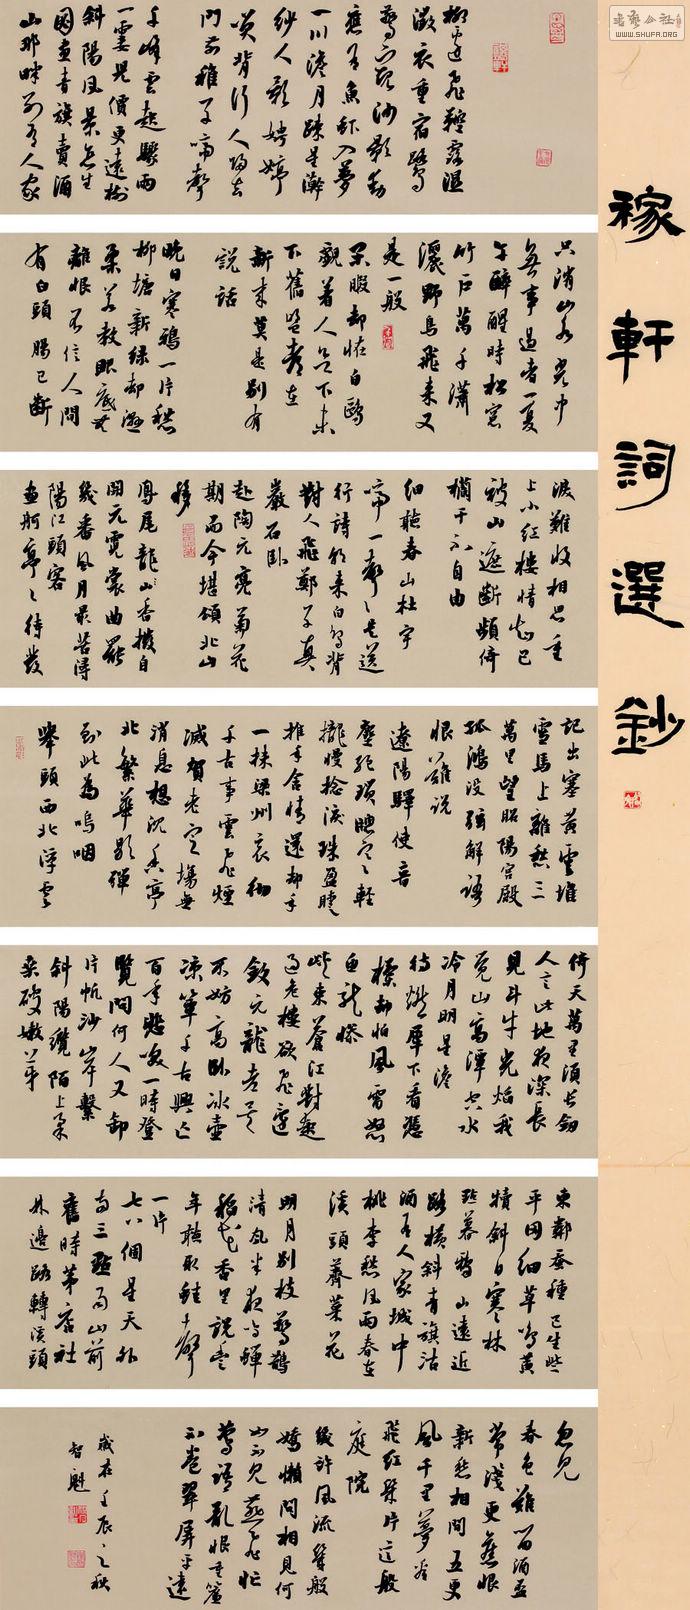 稼軒詞選鈔
柳邊飛鞚露濕
征衣重宿鷺
驚窺沙影動
應有魚蝦入夢
一川澹月疎星浣
紗人影娉婷
笑背行人歸去
門前稚子啼聲
千峰雲起驟雨
一霎兒價更遠樹
斜陽風景怎生
圖畫青旗賣酒
山那畔別有人家
只消山水光中
無事過者一夏
午醉醒時松窗
竹戶萬千瀟
灑野鳥飛來又
是一般
閑暇却怪白鷗
覷着人欲下未
下舊盟都在
新來莫是別有
說話
晚日寒鴉一片愁
柳塘新綠却溫
柔若教眼底無
離恨不信人間
有白頭腸已斷
淚難收相思重
上小紅樓情知已
被山遮斷頻倚
欄干不自由
細聽春山杜宇
啼一聲聲是送
行詩朝來白鳥背
對人飛鄭子真
巖石臥
赴陶元亮菊花
期而今堪誦北山
移
鳳尾龍香撥自
開元霓裳曲罷
幾番風月最苦潯
陽江頭客
畫舸亭亭待發
記出塞黃雲堆
雪馬上離愁三
萬里望昭陽宮殿
孤鴻沒弦解語
恨難說
遼陽驛使音
塵絕瑣窗寒輕
攏慢撚淚珠盈睫
推手含情還却手
一抹梁州哀徹
千古事雲飛煙
滅賀老定場無
消息想沉香亭
北繁華歇彈
到此為嗚咽
舉頭西北浮雲
倚天萬里須長劍
人言此地夜深長
見斗牛光焰我
覓山高潭空水
冷月明星淡
待燃犀下看憑
欄却怕風雷怒
魚龍慘
峽束蒼江對起
過危樓欲飛還
斂元龍老矣
不妨高臥冰壺
涼簟千古興亡
百年悲笑一時登
覽問何人又卸
片帆沙岸繫
斜陽纜陌上柔
桑破嫩芽
東鄰蠶種已生些
平岡細草鳴黃
犢斜日寒林
點暮鴉山遠近
路橫斜青旗沽
酒有人家城中
桃李愁風雨春在
溪頭薺菜花
明月別枝驚鵲
清風半夜鳴蟬
稻花香里說豐
年聽取蛙聲
一片
七八個星天外
兩三點雨山前
舊時茅店社
林邊路轉溪頭
忽見
春色難留酒盃
常淺更舊恨
新愁相間五更
風千里夢看
飛紅幾片這般
庭院
幾許風流幾般
嬌懶問相見何
如不見燕飛忙
鶯語亂恨重簾
不卷翠屏平遠
歲在壬辰之秋
智魁
WWW.SHUFA.ORG